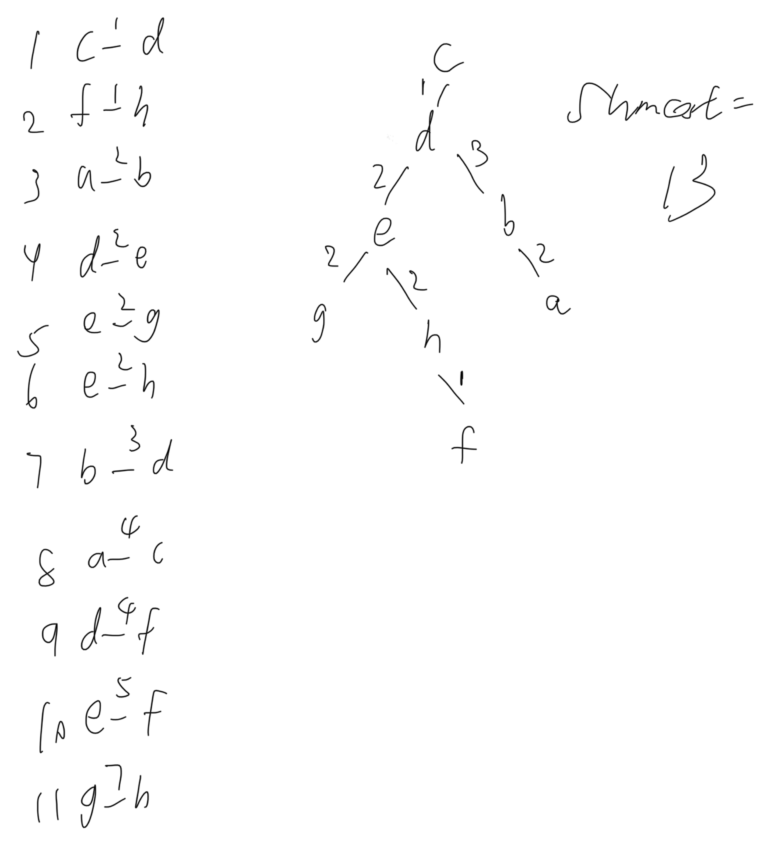 1 c-1-d
2 f-1-h
3 a-2-b
4 d-2-e
5 e-2-g
6 e-2-h
7 b-3-d
8 a-4-c
9 d-4-f
10 e-5-f
11 g-7-h
c
1
d
2 3
e b
2 2 2
g h a
1
f
=
13